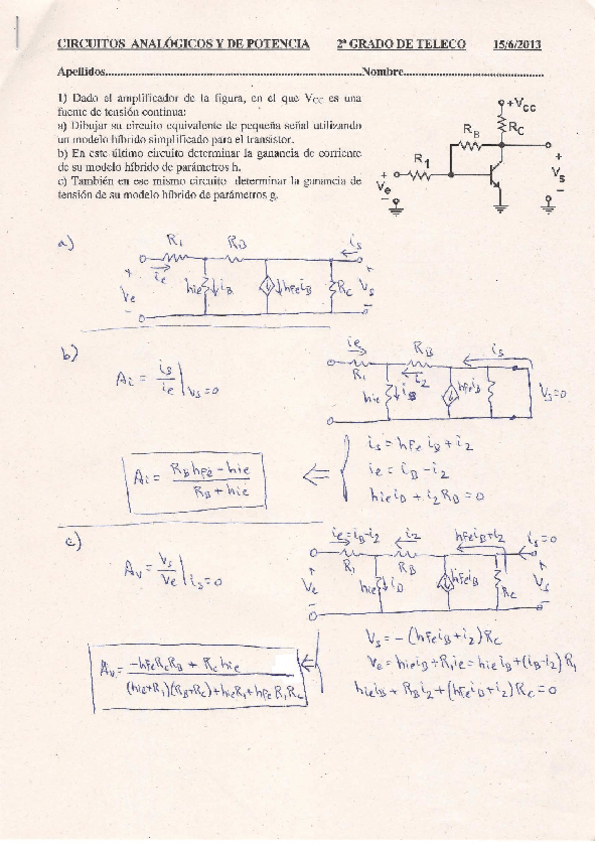 CIRCUITOS ANALÓGICOS Y DE POTENCIA 2º GRADO DE TELECO 15/6/2013
Apellidos..........Nombre..........
1) Dado el amplificador de la figura, en el que VCC es una
fuente de tensión continua:
a) Dibujar su circuito equivalente de pequeña señal utilizando
un modelo híbrido simplificado para el transistor.
b) En este último circuito determinar la ganancia de corriente
de su modelo híbrido de parámetros h.
c) También en ese mismo circuito determinar la ganancia de
tensión de su modelo híbrido de parámetros g.
+VCC
RB RC
R1
+ Ve −
+ Vs −
a)
R1 RB is
ie
+ Ve − hie iB hfeiB RC Vs −
b)
Ai = is/ie | Vs=0
ie RB is
R1 i2
hie iB hfeiB Vs=0
is = hfe iB + i2
ie = iB − i2
hie iB + i2 RB = 0
Ai = (RB hfe − hie)/(RB + hie) ⇐
c)
Av = Vs/Ve | is=0
ie=iB−i2 i2 hfeiB+i2 is=0
R1 RB
Ve hie iB hfeiB RC Vs
Vs = −(hfe iB + i2) RC
Ve = hie iB + R1 ie = hie iB + (iB−i2) R1
hie iB + RB i2 + (hfe iB + i2) RC = 0
Av = (−hfe RC RB + RC hie)/((hie+R1)(RB+RC) + hie R1 + hfe R1 RC) ⇐